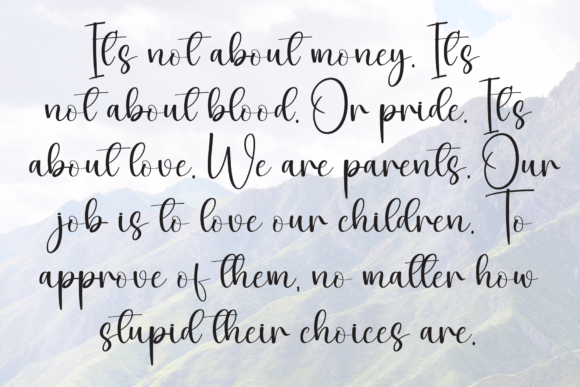 It's not about money. It's
not about blood. Or pride. It's
about love. We are parents. Our
job is to love our children. To
approve of them, no matter how
stupid their choices are.